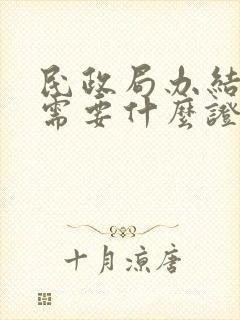 民政局办结
需要什麼證
十月凉唐